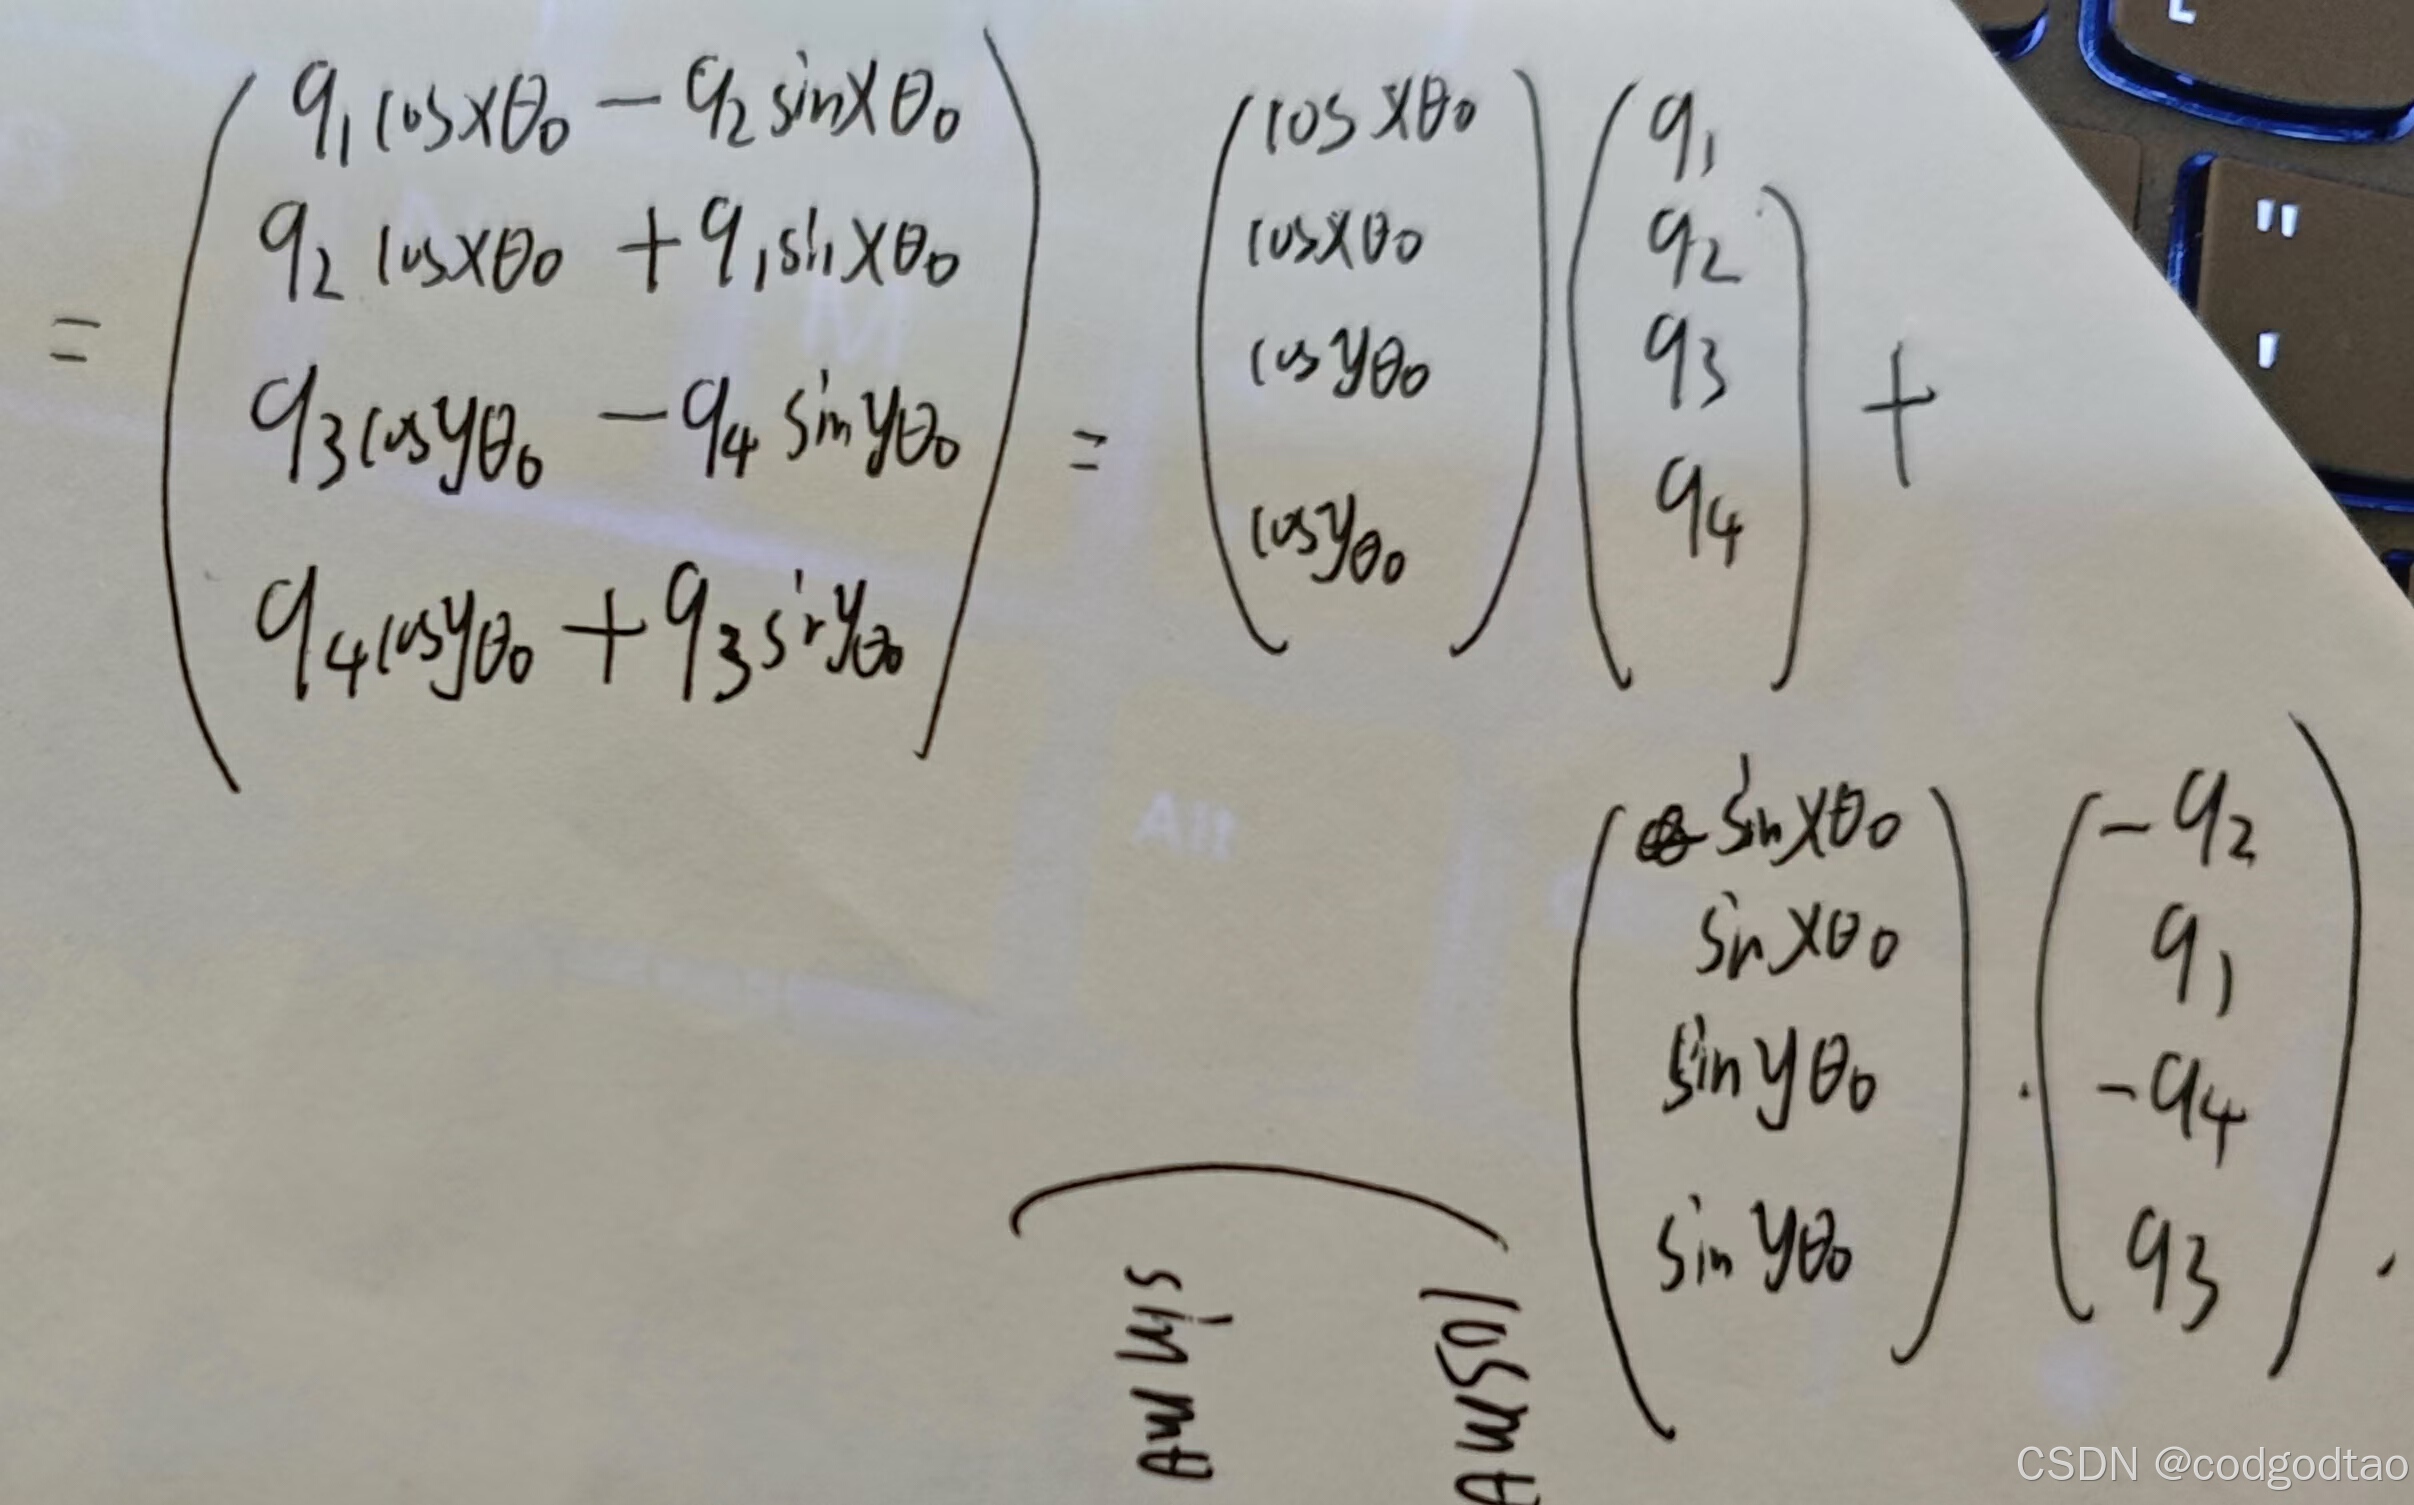 = ( q₁ cosxθ₀ − q₂ sinxθ₀
q₂ cosxθ₀ + q₁ sinxθ₀
q₃ cosyθ₀ − q₄ sinyθ₀
q₄ cosyθ₀ + q₃ sinyθ₀ )
= ( cosxθ₀
cosxθ₀
cosyθ₀
cosyθ₀ )
( q₁
q₂
q₃
q₄ ) +
( sinxθ₀
sinxθ₀
sinyθ₀
sinyθ₀ ) ·
( −q₂
q₁
−q₄
q₃ ) .
cosmθ
sinmθ
Alt
"
'
CSDN @codgodtao